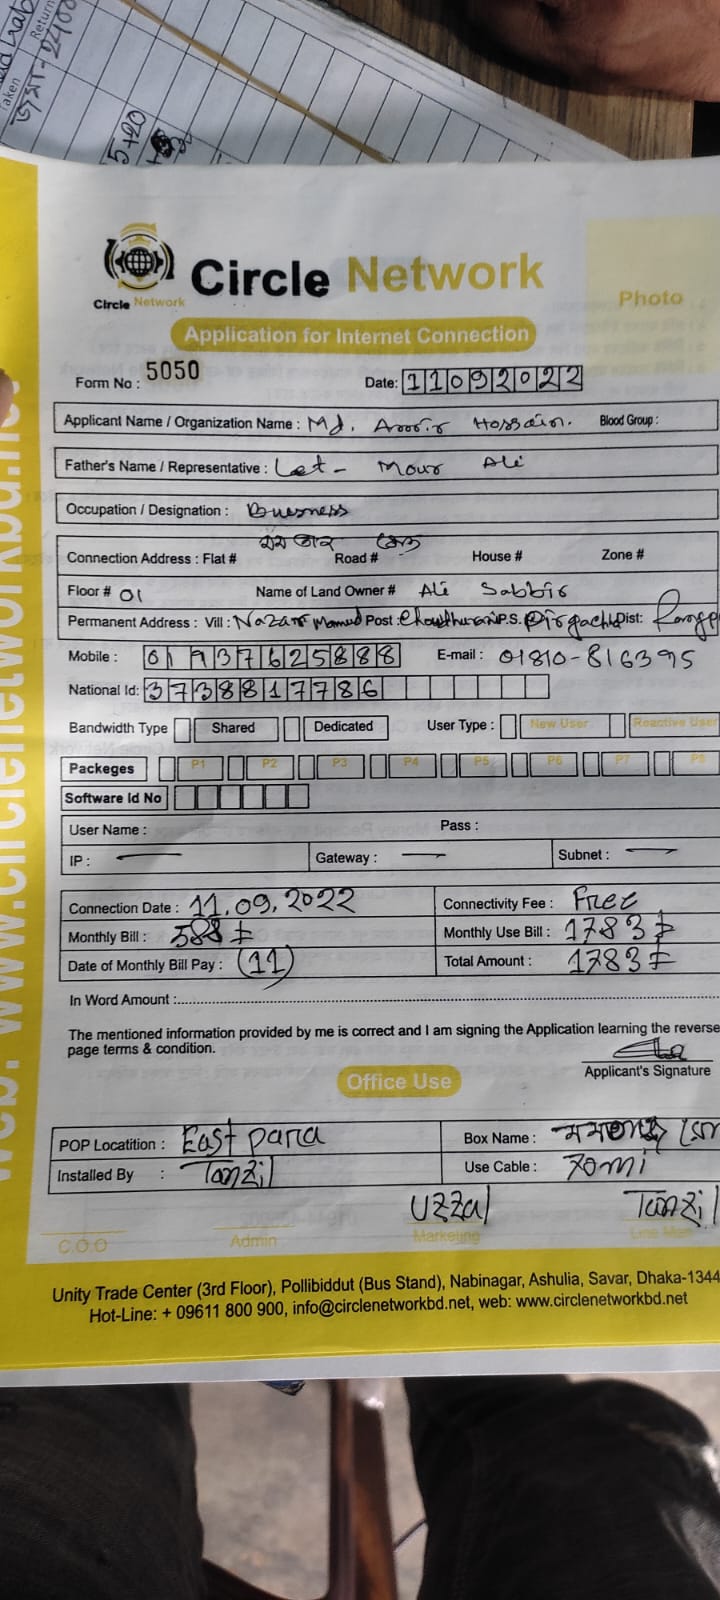 Taken
Return
5+20
Circle Network
Circle Network
Photo
Application for Internet Connection
Form No : 5050 Date: 11092022
Applicant Name / Organization Name : Md. Amir Hossain. Blood Group :
Father's Name / Representative : Let- Mour Ali
Occupation / Designation : Buesness
Connection Address : Flat # Road # House # Zone #
Floor # 01 Name of Land Owner # Ali Sabbir
Permanent Address : Vill : Nazar Mamud Post : Chowdhurani P.S. Pirgacha Dist:
Mobile : 01937625888 E-mail : 01810-816395
National Id: 3738817786
Bandwidth Type Shared Dedicated User Type : New User Reactive User
Packeges P1 P2 P3 P4 P5 P6 P7 P8
Software Id No
User Name : Pass :
IP : — Gateway : — Subnet : —
Connection Date : 11.09.2022 Connectivity Fee : Free
Monthly Bill : 588 Monthly Use Bill : 1783
Date of Monthly Bill Pay : (11) Total Amount : 1783
In Word Amount :
The mentioned information provided by me is correct and I am signing the Application learning the reverse
page terms & condition.
Applicant's Signature
Office Use
POP Locatition : East para Box Name :
Installed By : Tanzil Use Cable : 70mi
Uzzal Tanzil
C.O.O Admin Marketing Line Man
Unity Trade Center (3rd Floor), Pollibiddut (Bus Stand), Nabinagar, Ashulia, Savar, Dhaka-1344
Hot-Line: + 09611 800 900, info@circlenetworkbd.net, web: www.circlenetworkbd.net
web: www.circlenetworkbd.net